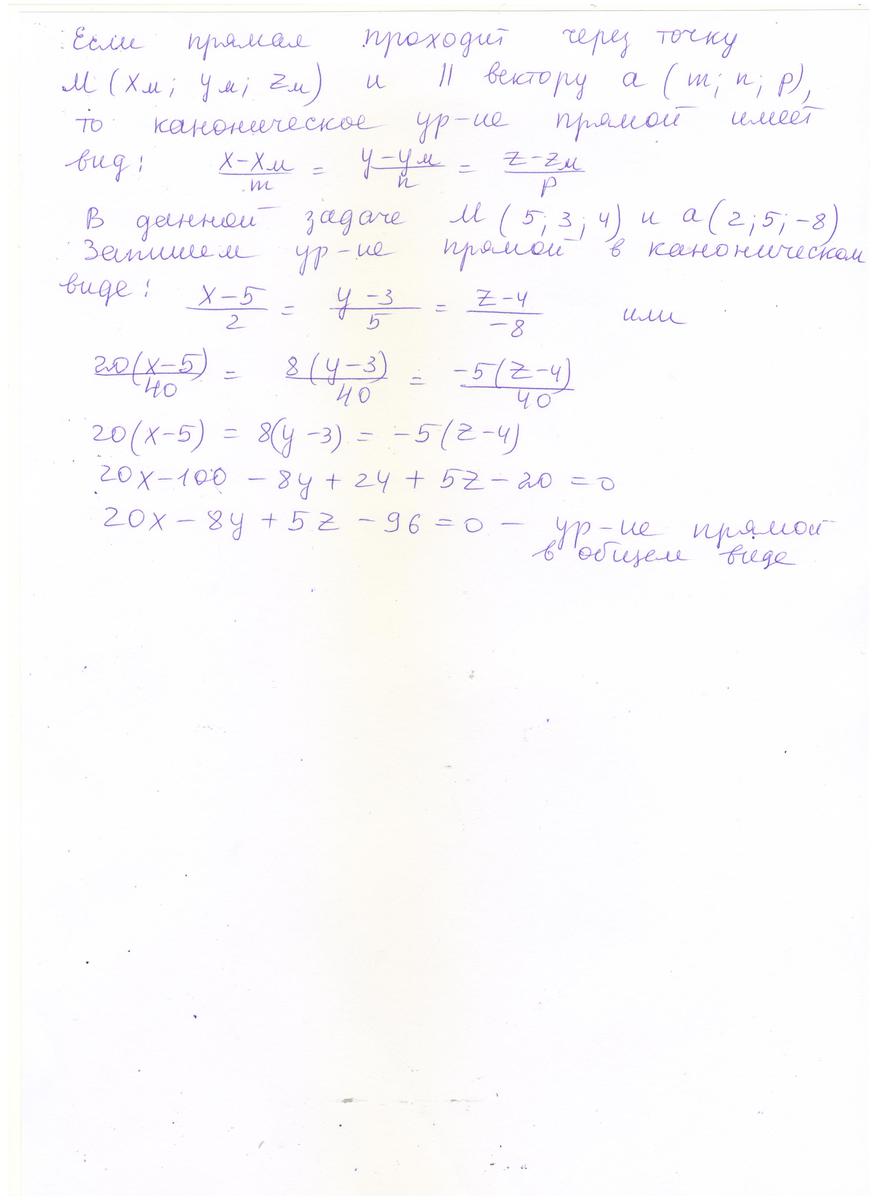 Если прямая проходит через точку
М (xм; yм; zм) и || вектору a (m; n; p),
то каноническое ур-ие прямой имеет
вид: x-xм/m = y-yм/n = z-zм/p
В данной задаче М (5; 3; 4) и a(2; 5; -8)
Запишем ур-ие прямой в каноническом
виде: x-5/2 = y-3/5 = z-4/-8 или
20(x-5)/40 = 8(y-3)/40 = -5(z-4)/40
20(x-5) = 8(y-3) = -5(z-4)
20x-100 - 8y + 24 + 5z - 20 = 0
20x - 8y + 5z - 96 = 0 - ур-ие прямой
в общем виде